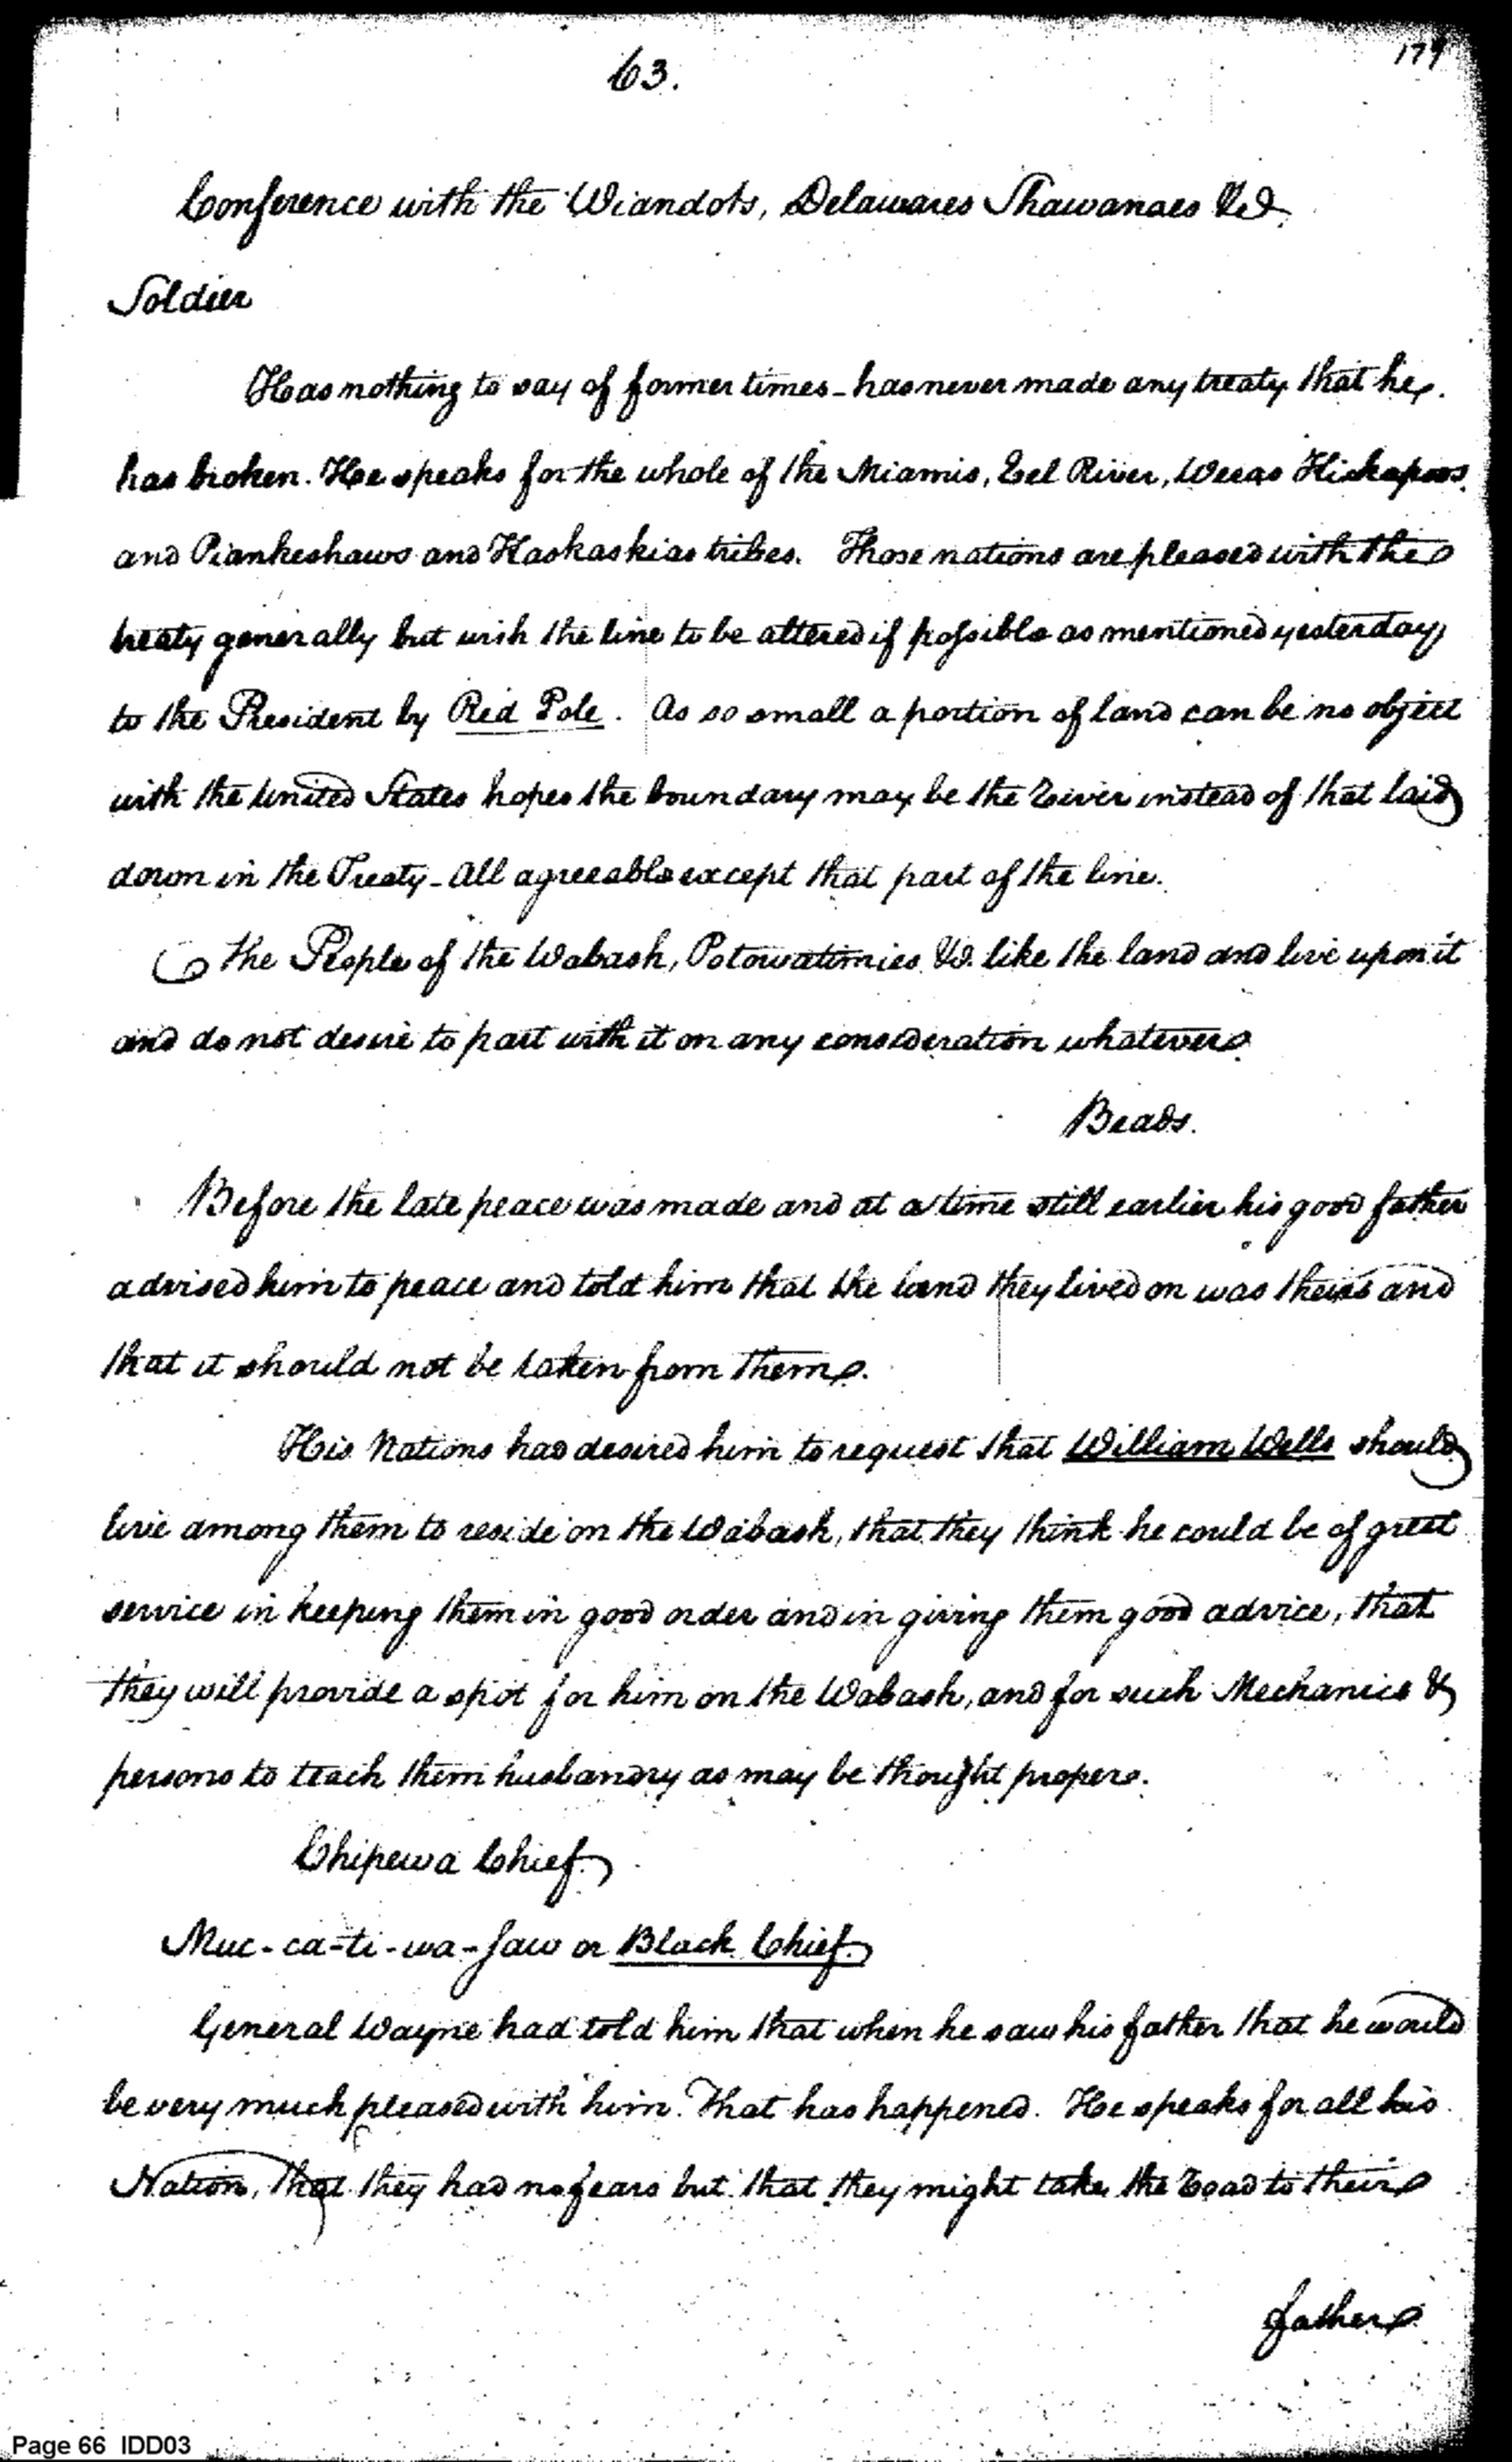 63.
179
Conference with the Wiandots, Delawares Shawanaes &c.
Soldier
Has nothing to say of former times - has never made any treaty that he
has broken. He speaks for the whole of the Miamis, Eel River, Weeas Kickapoos
and Piankeshaws and Kaskaskias tribes. Those nations are pleased with the
treaty generally but wish the line to be altered if possible as mentioned yesterday
to the President by Red Pole. As so small a portion of land can be no object
with the United States hopes the boundary may be the River instead of that laid
down in the Treaty - All agreeable except that part of the line.
The People of the Wabash, Potowatimies &c. like the land and live upon it
and do not desire to part with it on any consideration whatever
Beads.
Before the late peace was made and at a time still earlier his good father
advised him to peace and told him that the land they lived on was theirs and
that it should not be taken from them.
His Nations had desired him to request that William Wells should
live among them to reside on the Wabash, that they think he could be of great
service in keeping them in good order and in giving them good advice, that
they will provide a spot for him on the Wabash, and for such Mechanics &
persons to teach them husbandry as may be thought proper.
Chipewa Chief
Muc-ca-ti-wa-saw or Black Chief
General Wayne had told him that when he saw his father that he would
be very much pleased with him. That has happened. He speaks for all his
Nation, that they had no fears but that they might take the Road to their
father
Page 66 IDD03